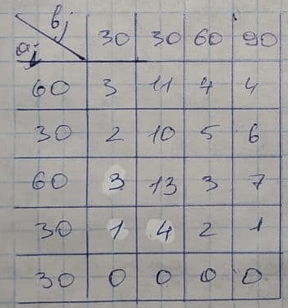 bj
ai 30 30 60 90
60 3 11 4 4
30 2 10 5 6
60 3 13 3 7
30 1 4 2 1
30 0 0 0 0